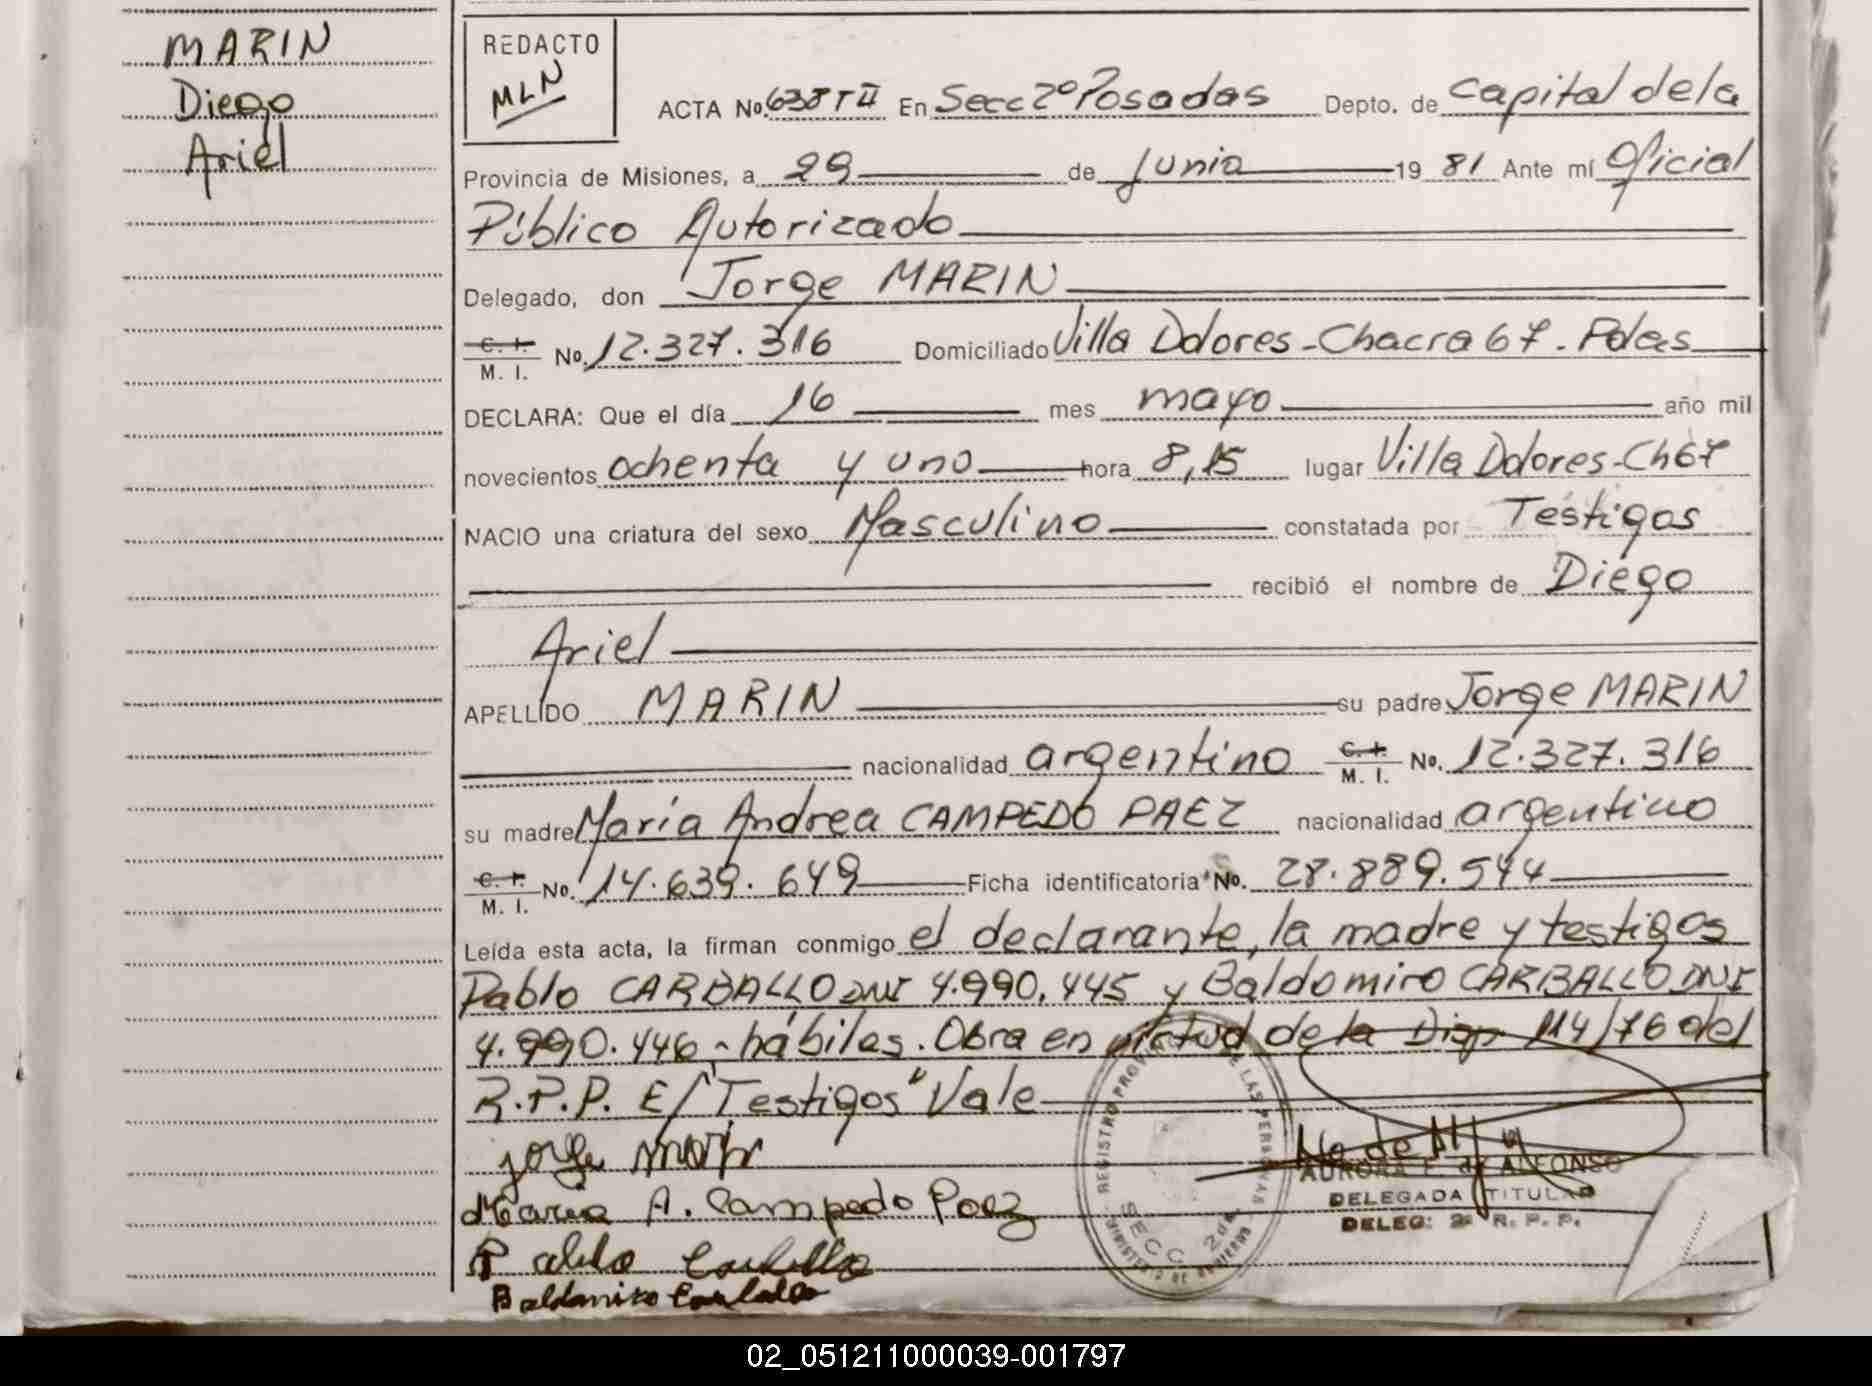 MARIN
Diego
Ariel
REDACTO
MLN
ACTA No. 638 T II En Secc 2º Posadas Depto. de Capital de la
Provincia de Misiones, a 29 de Junio 1981 Ante mí Oficial
Público Autorizado
Delegado, don Jorge MARIN
C. I.
M. I. No. 12.327.316 Domiciliado Villa Dolores - Chacra 67. Pdas
DECLARA: Que el día 16 mes mayo año mil
novecientos ochenta y uno hora 8,15 lugar Villa Dolores - Ch 67
NACIO una criatura del sexo Masculino constatada por Testigos
recibió el nombre de Diego
Ariel
APELLIDO MARIN su padre Jorge MARIN
nacionalidad argentino C. I.
M. I. No. 12.327.316
su madre María Andrea CAMPEDO PAEZ nacionalidad argentino
C. I.
M. I. No. 14.639.649 Ficha identificatoria No. 28.889.544
Leída esta acta, la firman conmigo el declarante, la madre y testigos
Pablo CARBALLO DNI 4.990.445 y Baldomiro CARBALLO DNI
4.990.446 - hábiles. Obra en virtud de la Disp 114/76 del
R.P.P. E/"Testigos" Vale
Jorge Marin
Maria A. Campedo Paez
Pablo Carballo
Baldomiro Carballo
REGISTRO PROVINCIAL DE LAS PERSONAS
SECC 2da.
MINISTERIO DE GOBIERNO
AURORA E. de ALFONSO
DELEGADA TITULAR
DELEG: 2ª R. P. P.
02_051211000039-001797